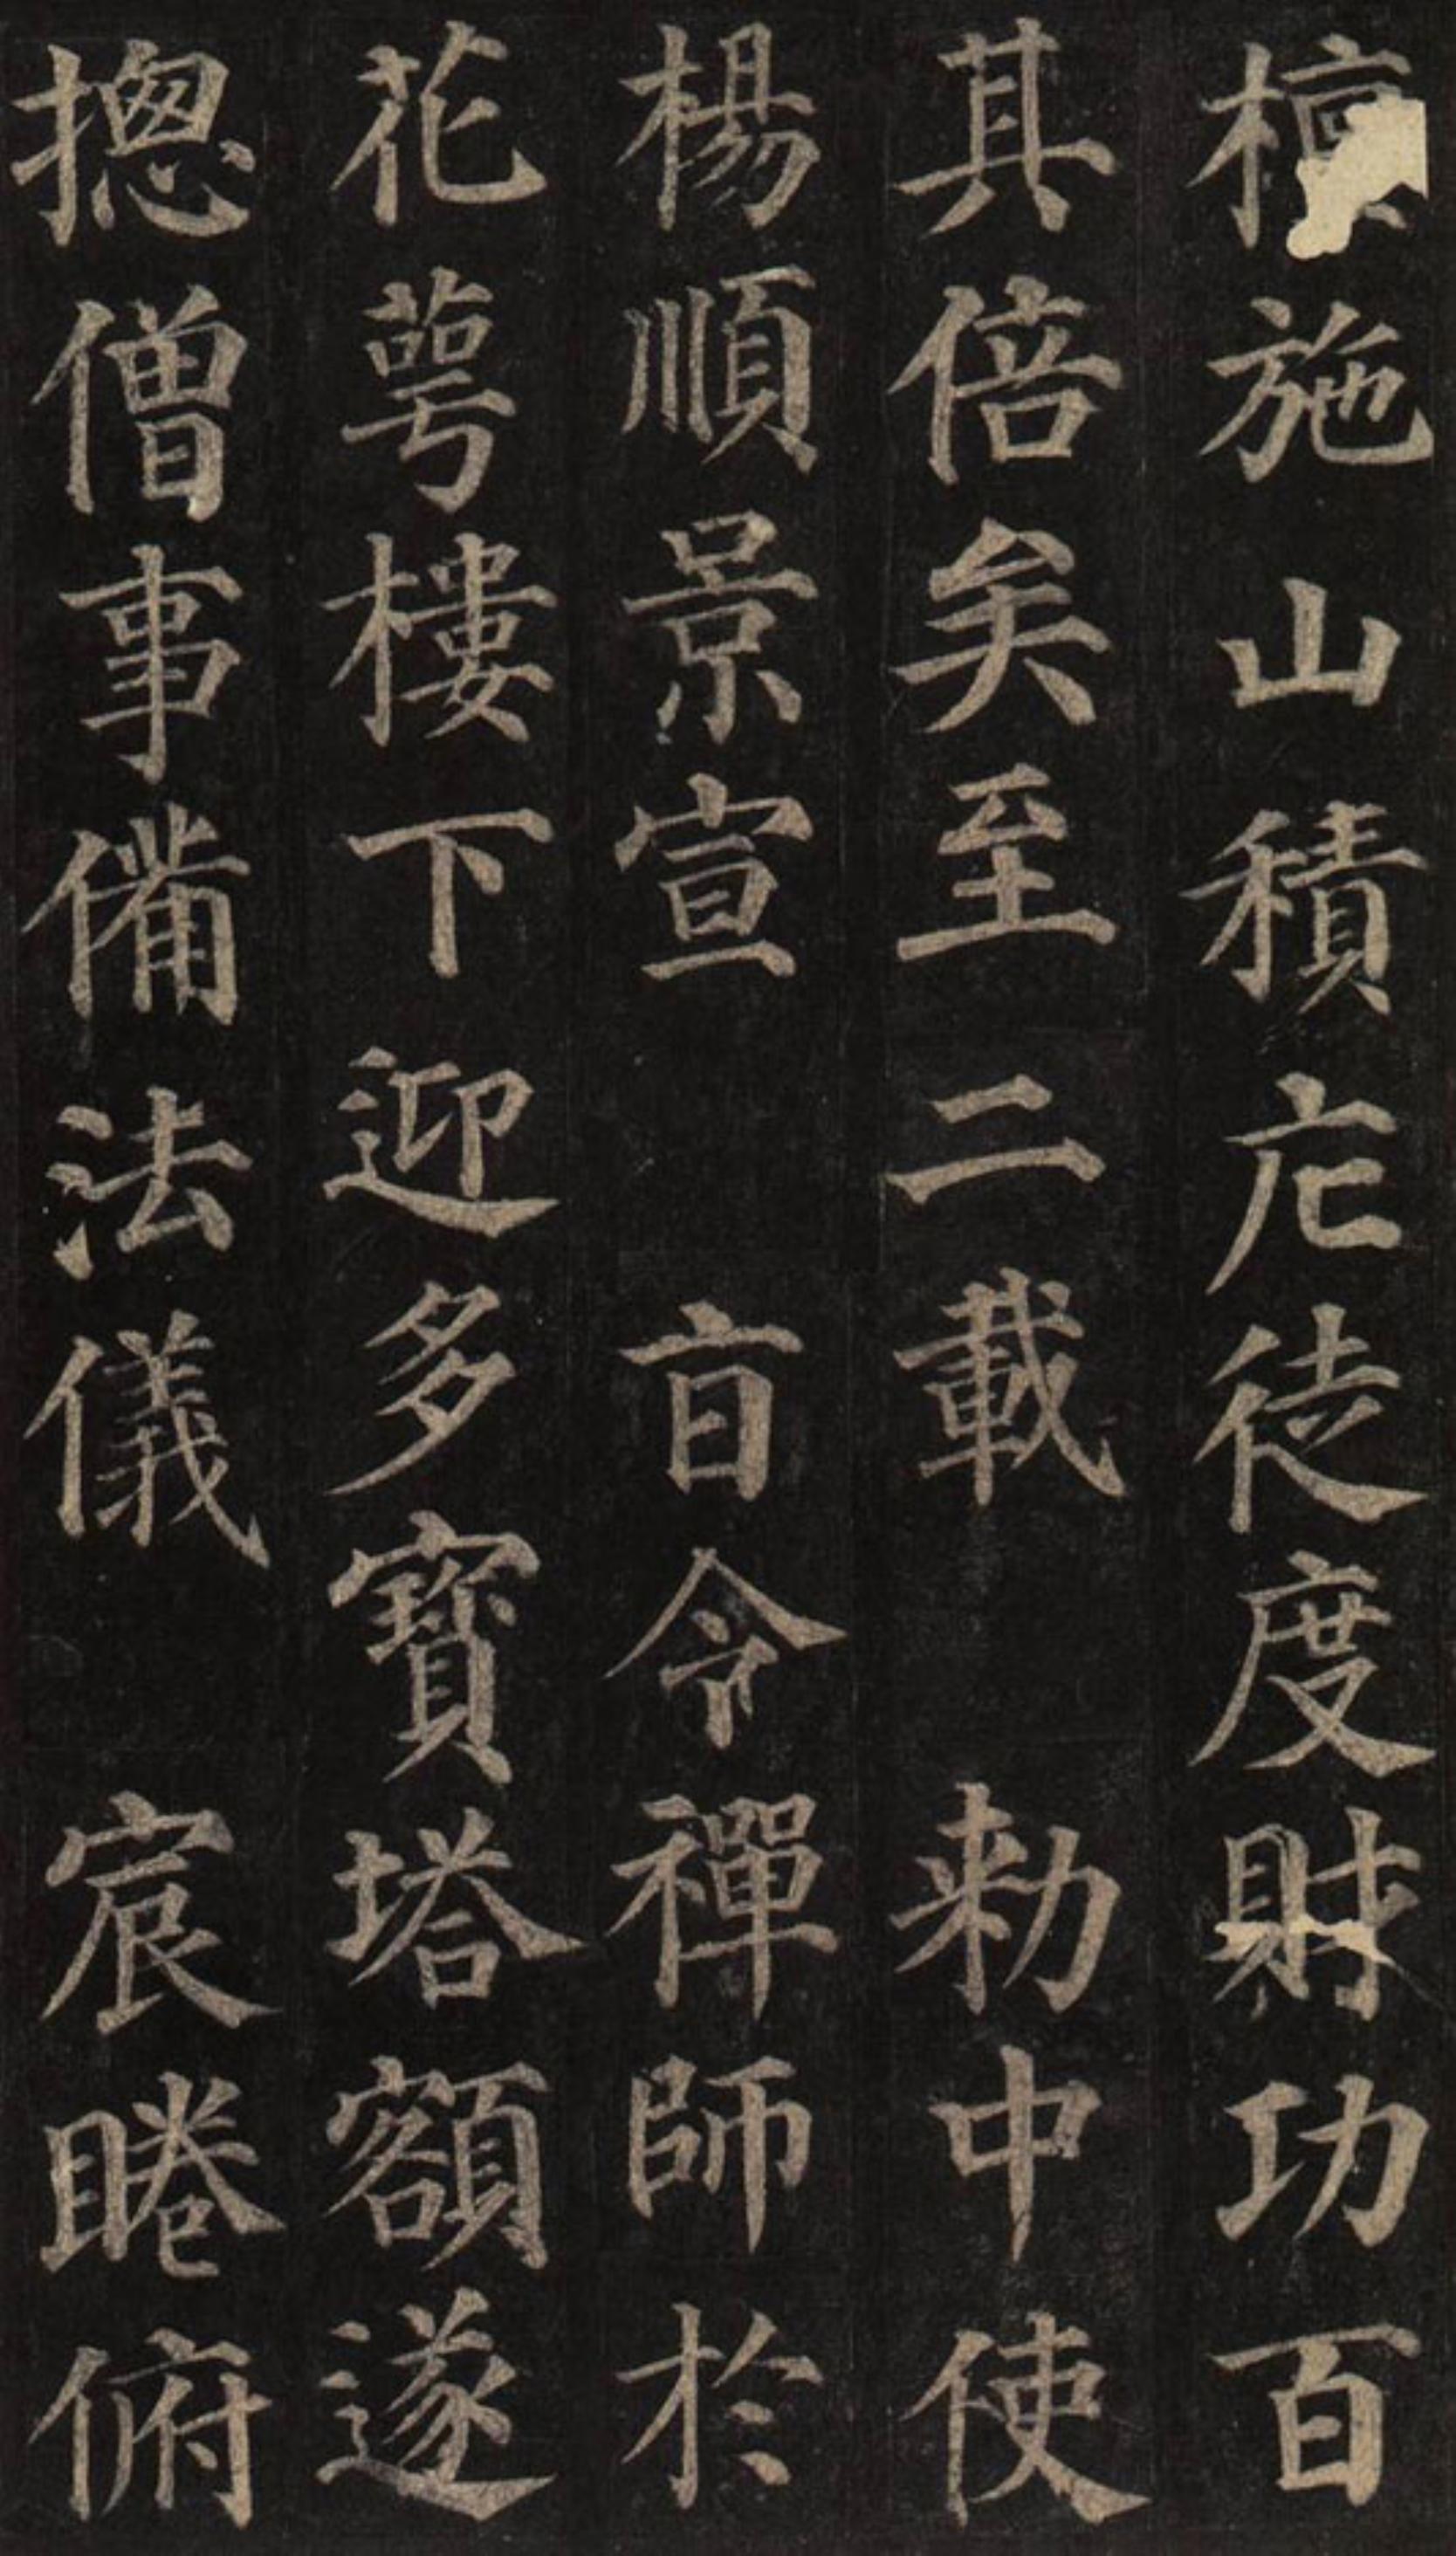 檀施山積庀徒度財功百
其倍矣至二載勑中使
楊順景宣㫖令禪師於
花萼樓下迎多寶塔額遂
摠僧事備法儀宸睠俯